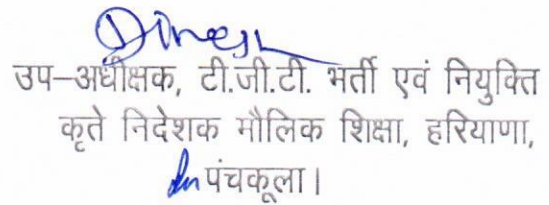 Dinesh
उप–अधीक्षक, टी.जी.टी. भर्ती एवं नियुक्ति
कृते निदेशक मौलिक शिक्षा, हरियाणा,
पंचकूला।